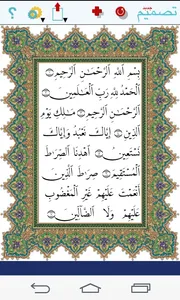 تصميم
بِسْمِ اللَّهِ الرَّحْمَٰنِ الرَّحِيمِ ۝
الْحَمْدُ لِلَّهِ رَبِّ الْعَالَمِينَ ۝
الرَّحْمَٰنِ الرَّحِيمِ ۝ مَالِكِ يَوْمِ
الدِّينِ ۝ إِيَّاكَ نَعْبُدُ وَإِيَّاكَ
نَسْتَعِينُ ۝ اهْدِنَا الصِّرَاطَ
الْمُسْتَقِيمَ ۝ صِرَاطَ الَّذِينَ
أَنْعَمْتَ عَلَيْهِمْ غَيْرِ الْمَغْضُوبِ
عَلَيْهِمْ وَلَا الضَّالِّينَ ۝